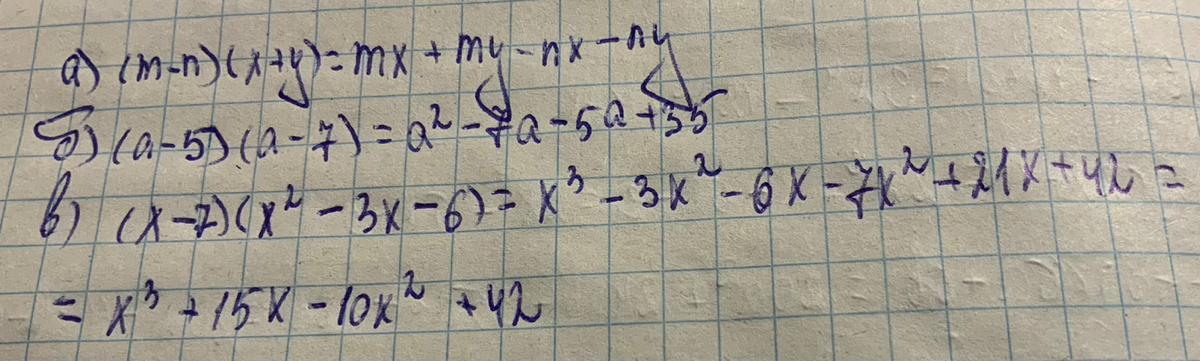 а) (m-n)(x+y)=mx+my-nx-ny
б) (a-5)(a-7)=a²-7a-5a+35
в) (x-7)(x²-3x-6)=x³-3x²-6x-7x²+21x+42=
=x³+15x-10x²+42